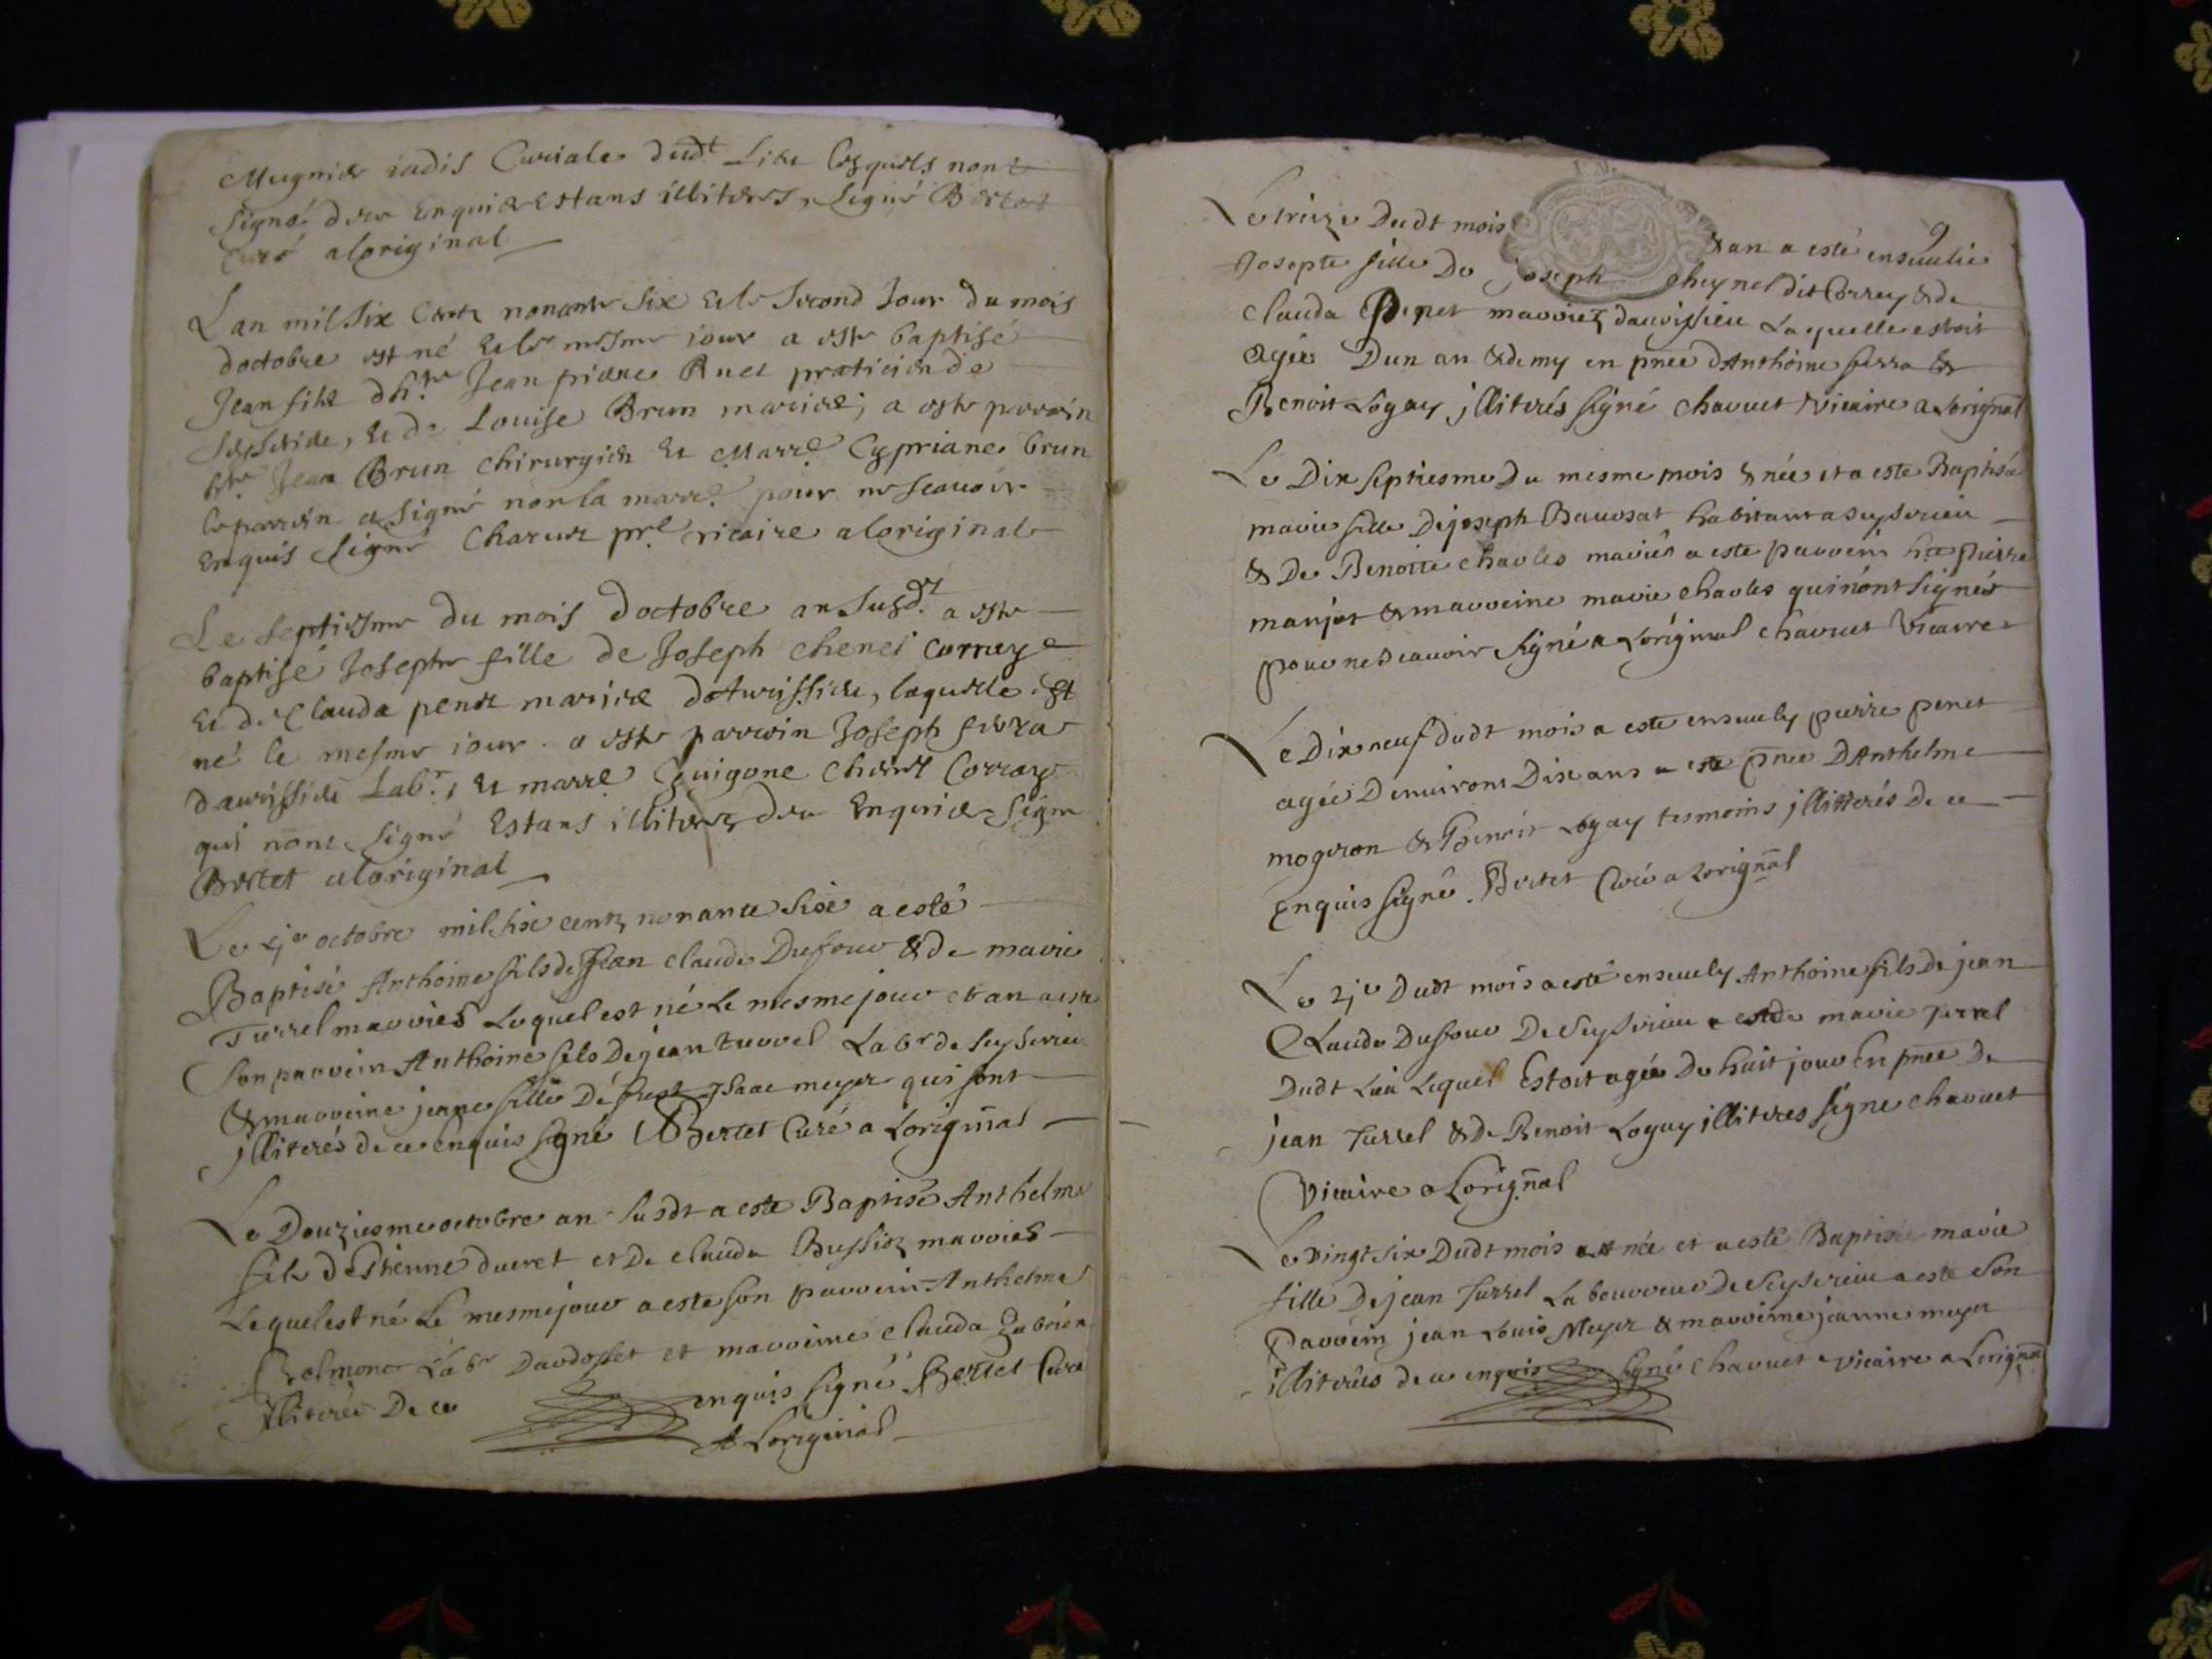 Mugnier iadis Curiale dudt Lieu lesquels nont
signé de ce Enquis Estans illiteres, signé Bertet
Curé a loriginal
Lan mil six Cents nonante six et le second Jour du mois
doctobre est né et le mesme iour a esté baptisé
Jean fils dhte Jean pierre Ruet praticien de
Seysserieu, et de Louise Brun mariés; a esté parrein
hte Jean Brun chirurgien et Marre Cypriane brun
le parrein a signé non la marre pour ne scauoir
Enquis signé Charuet pre vicaire a loriginal
Le septiesme du mois doctobre an susdt a esté
baptisé Josephe fille de Joseph chenel Correy
et de Clauda penet mariés dAurissieu, laquelle est
né le mesme iour. a esté parrein Joseph ferra
daurissieu Labr, et marre Guigone Chenel Correy
qui nont signé Estans illiteres de ce Enquis signé
Bertet a loriginal
Le xje octobre mil six cents nonante six a esté
Baptisé Anthoine fils de Jean claude Dufour & de marie
Turrel mariés Lequel est né Le mesme jour et an a esté
son parrein Anthoine fils de jean turrel Labr de Seyserieu
& marreine jeane fille de Isaac meyer qui sont
illiterés de ce enquis signé Bertet Curé a Loriginal
Le Douziesme octobre an susdt a esté Baptisé Anthelme
fils dEstienne ducret et De clauda Bussiez mariés
Lequel est né Le mesme jour a este son parrein Anthelme
Labr Dardosset et marreine clauda
Illiterés De ce enquis signé Bertet Curé
A Loriginal
9
Le treize Dudt mois & an a esté enseuelie
Josepte fille De joseph cheynel dit Correy & de
clauda Penet mariez daurissieu Laquelle estoit
agée Dun an & demy en pnce dAnthoine ferra &
Benoit Logay jlliterés signé charuet vicaire a Lorignal
Le Dix septiesme Du mesme mois & née et a este Baptisée
marie fille De joseph Bauosat habitant a Seyserieu
& De Benoitte charles mariés a este parrein hte pierre
marjot & marreine marie charles qui nont signés
pour ne scauoir signé a Loriginal charuet Vicaire
Le Dix neuf dudt mois a este enseuely pierre penet
agée Denuirons Dix ans a este pnce DAnthelme
mogeron & Benoit Logay tesmoins jllitterés De ce
Enquis signé. Bertet Curé a Lorignal
Le 2je Dudt mois a esté enseuely Anthoine fils De jean
Claude Dufour De Seyserieu & de marie turrel
Dudt Lieu Lequel Estoit agée De huit jour En pnce De
jean Turrel & De Benoit Logay illiteres signe charuet
Vicaire a Lorignal
Le vingt six Dudt mois est née et a esté Baptisée marie
fille De jean Turrel Laboureur De Seyserieu a este son
Parrein jean Louis Meyer & marreine jeanne meyer
illiterées de ce enquis signé charuet vicaire a Lorignal